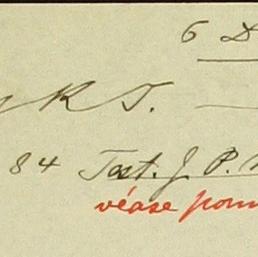 6 D
y K T.
84 Test. J. P.
véase